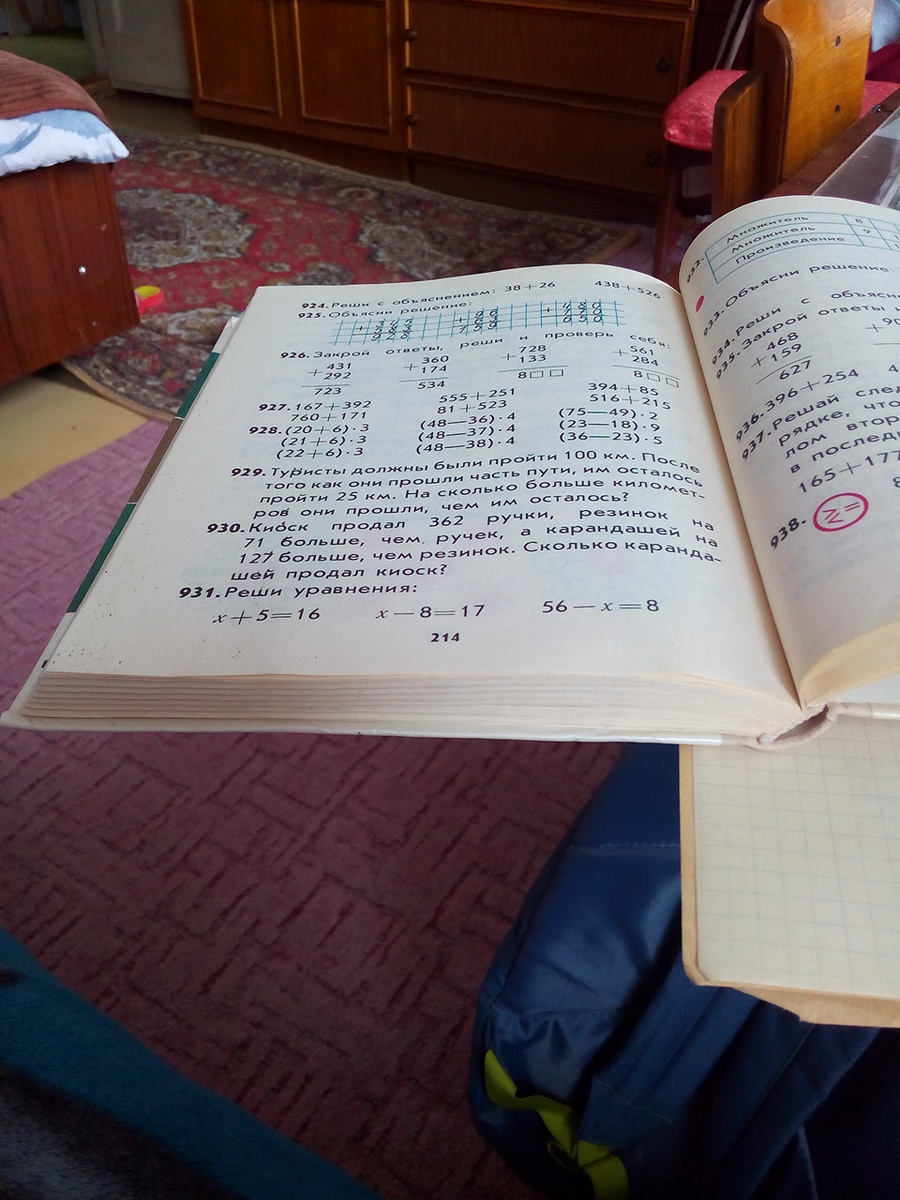 924. Реши с объяснением: 38+26 438+526
925. Объясни решение:
926. Закрой ответы, реши и проверь себя:
+431 +360 +728 +561
292 174 133 284
723 534 8□□ 8□□
927. 167+392 555+251 394+85
760+171 81+523 516+215
928. (20+6)·3 (48—36)·4 (75—49)·2
(21+6)·3 (48—37)·4 (23—18)·9
(22+6)·3 (48—38)·4 (36—23)·5
929. Туристы должны были пройти 100 км. После
того как они прошли часть пути, им осталось
пройти 25 км. На сколько больше километ-
ров они прошли, чем им осталось?
930. Киоск продал 362 ручки, резинок на
71 больше, чем ручек, а карандашей на
127 больше, чем резинок. Сколько каранда-
шей продал киоск?
931. Реши уравнения:
x+5=16 x—8=17 56—x=8
214
932.
Множитель 8
Множитель 9
Произведение
933. Объясни решение:
934. Реши с
935. Закрой ответы
+468
159
627
936. 396+254
937. Решай
165+177
938.